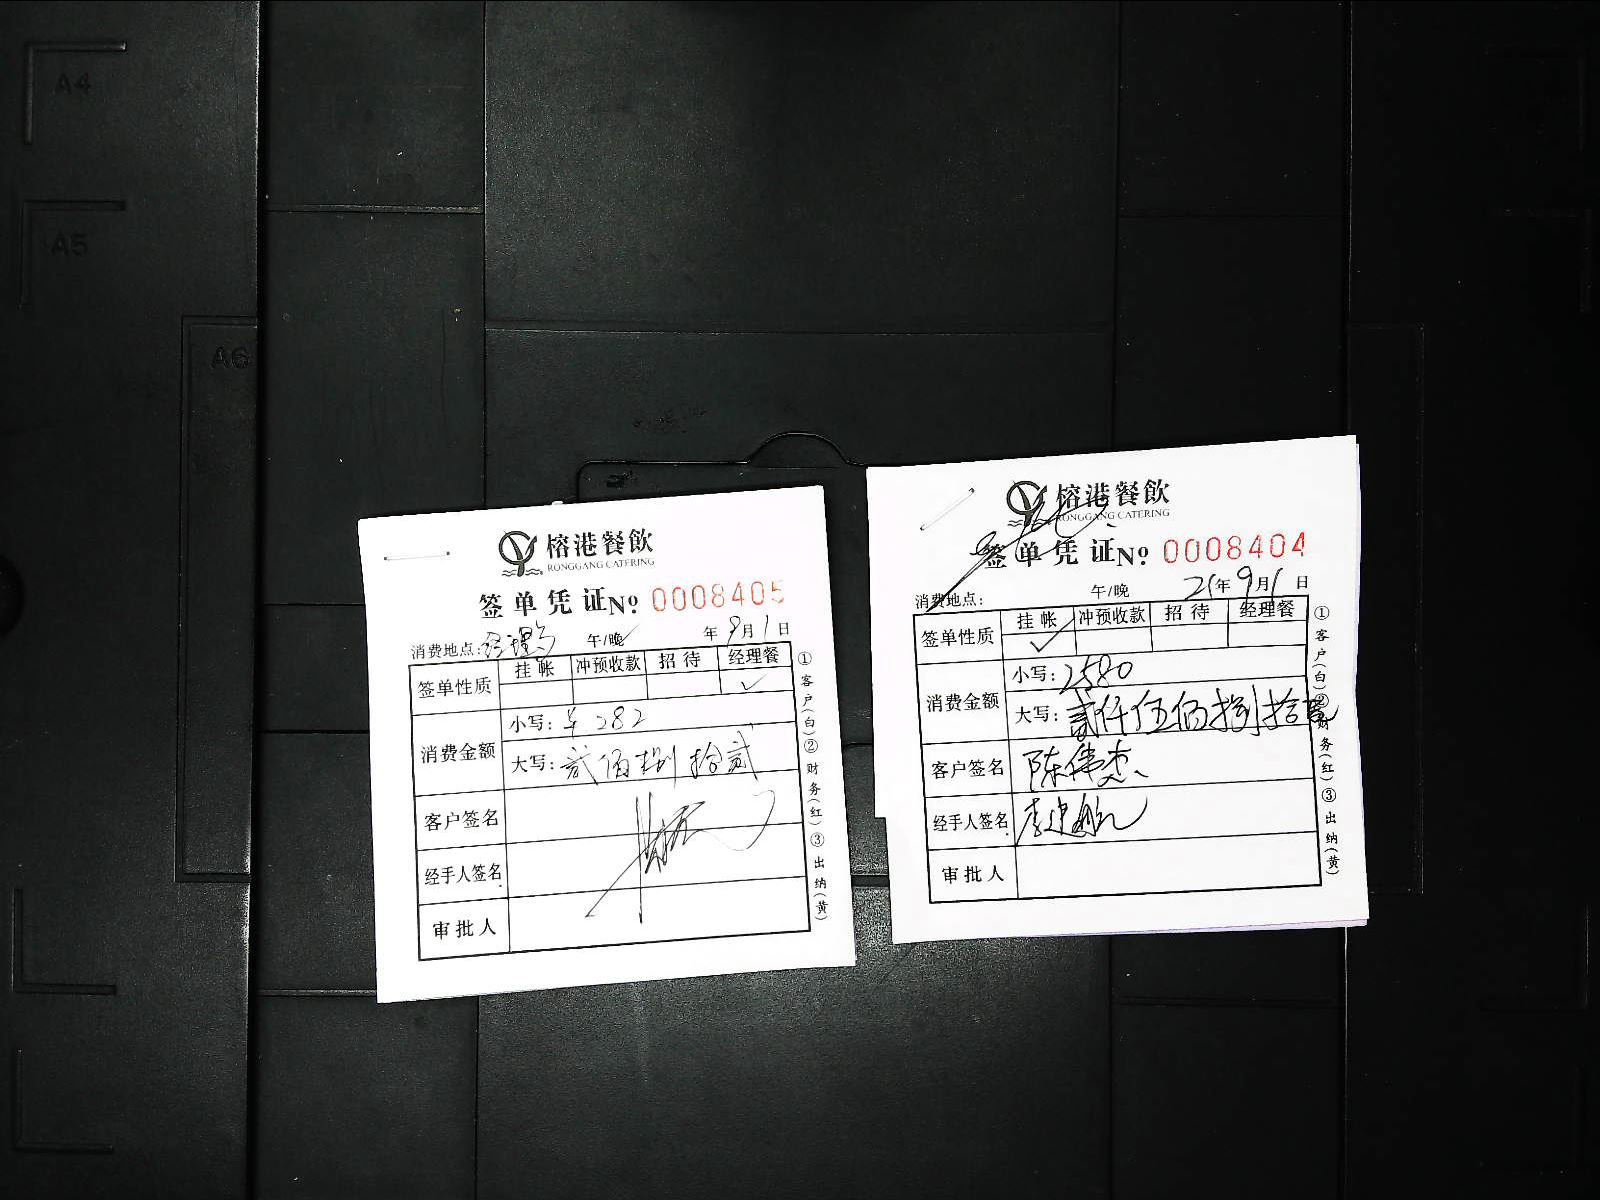 A4
A5
A6
榕港餐飲
RONGGANG CATERING
签单凭证No 0008405
消费地点: 午/晚 年 9月1日
签单性质 挂帐 冲预收款 招待 经理餐
✓
消费金额 小写: ¥ 282
大写: 贰佰捌拾贰
客户签名
经手人签名
审批人
①客户(白)②财务(红)③出纳(黄)
榕港餐飲
RONGGANG CATERING
签单凭证No 0008404
消费地点: 午/晚 21年9月1日
签单性质 挂帐 冲预收款 招待 经理餐
✓
消费金额 小写: 2580
大写: 贰仟伍佰捌拾
客户签名 陈伟杰
经手人签名 李建航
审批人
①客户(白)②财务(红)③出纳(黄)